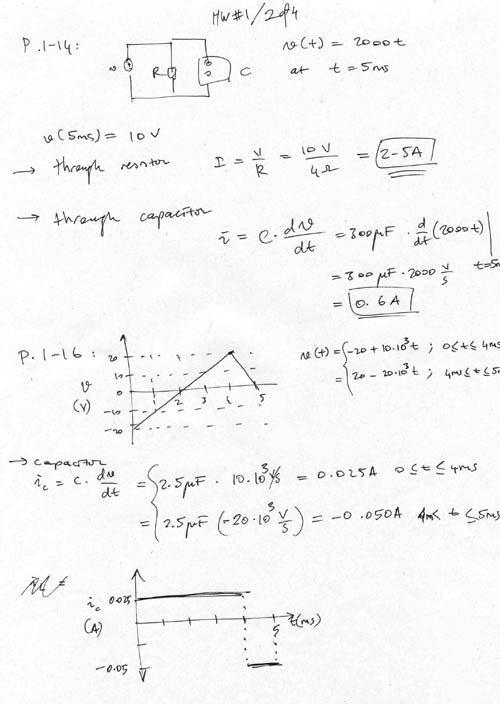 HW#1/2of4
P.1-14:
v R C
v(t) = 2000t
at t=5ms
v(5ms) = 10V
→ through resistor I = V/R = 10V/4Ω = 2-5A
→ through capacitor
i = C · dv/dt = 300μF · d/dt (2000t) |
= 300μF · 2000 V/S t=5m
= 0.6A
P.1-16:
v (V)
20
10
0
-10
-20
1 2 3 4 5
v(t) = { -20 + 10·10³t ; 0≤t≤4ms
= { 20 - 20·10³t ; 4ms≤t≤5m
→ capacitor
i_c = C · dv/dt = { 2.5μF · 10·10³ V/S = 0.025A 0≤t≤4ms
= { 2.5μF (-20·10³ V/S) = -0.050A 4m< t ≤5ms
i_c 0.025
(A)
-0.05
5 t(ms)